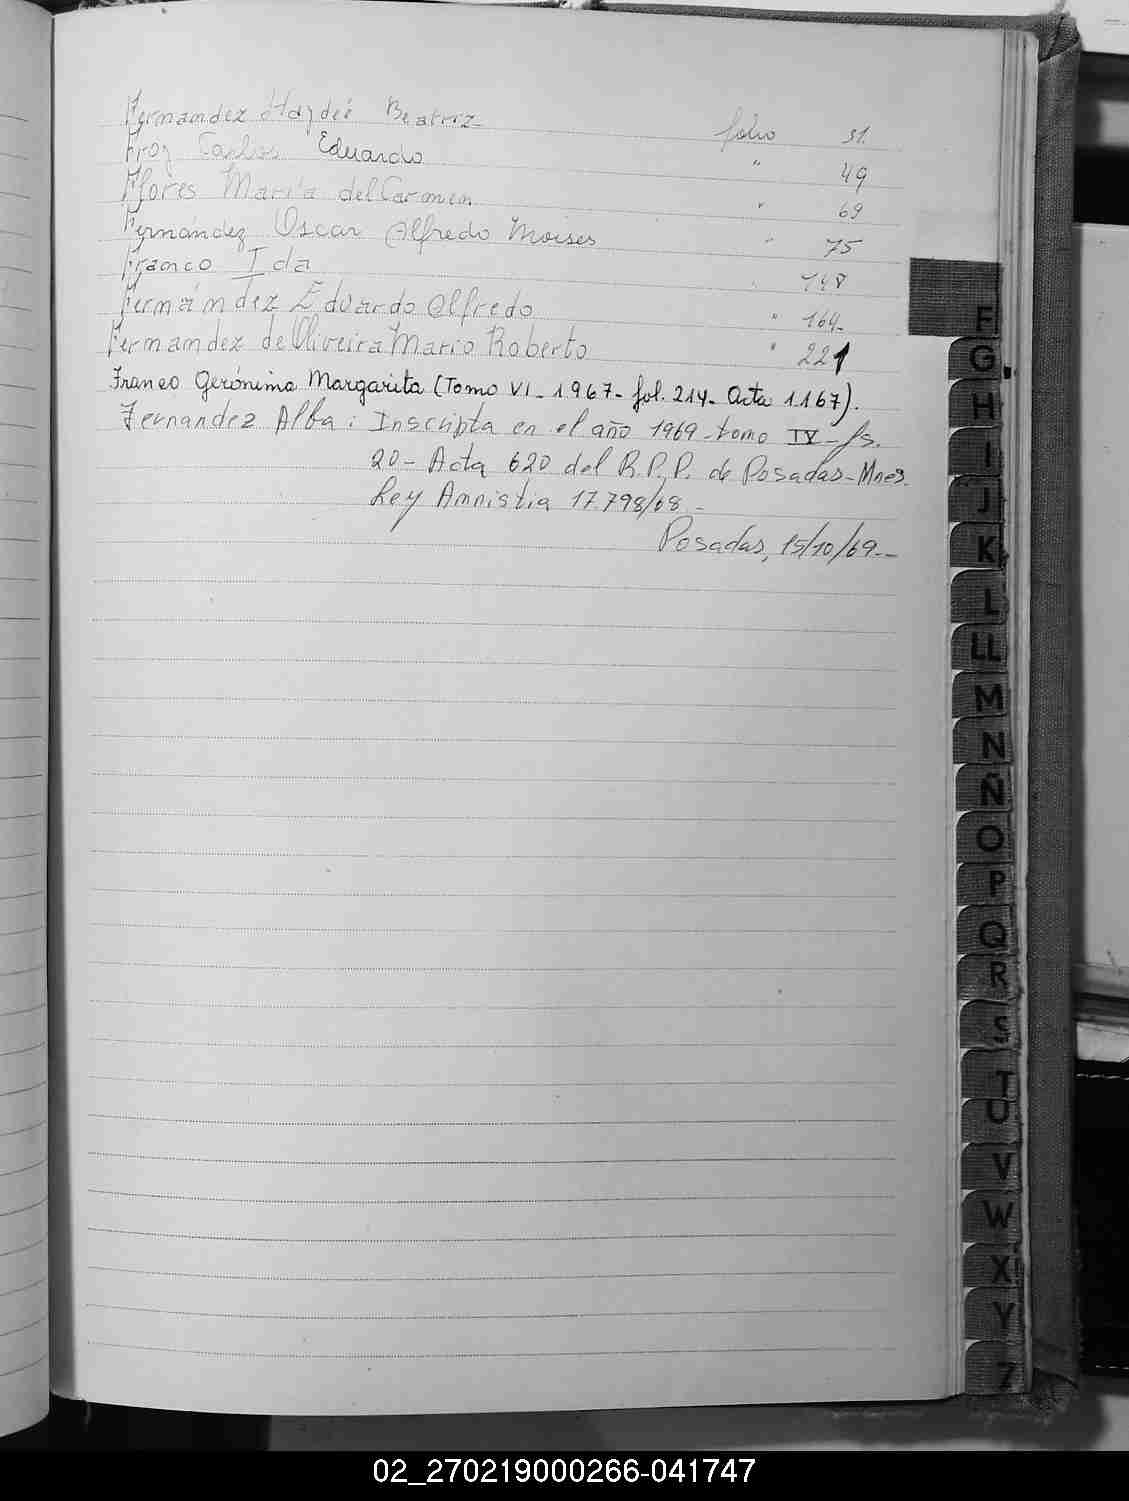 Fernandez Haydeé Beatriz folio 31.
Froz Carlos Eduardo " 49
Flores María del Carmen " 69
Fernández Oscar Alfredo Moises " 75
Franco Ida " 148
Fernández Eduardo Alfredo " 164-
Fernandez de Oliveira Mario Roberto " 221
Franco Gerónima Margarita (Tomo VI - 1967 - fol. 214 - Acta 1167).
Fernandez Alba: Inscripta en el año 1969 - tomo IV - fs.
20 - Acta 620 del R.P.P. de Posadas - Mnes.
Ley Amnistia 17.798/68 -
Posadas, 15/10/69 -
F
G
H
I
J
K
L
LL
M
N
Ñ
O
P
Q
R
S
T
U
V
W
X
Y
Z
02_270219000266-041747